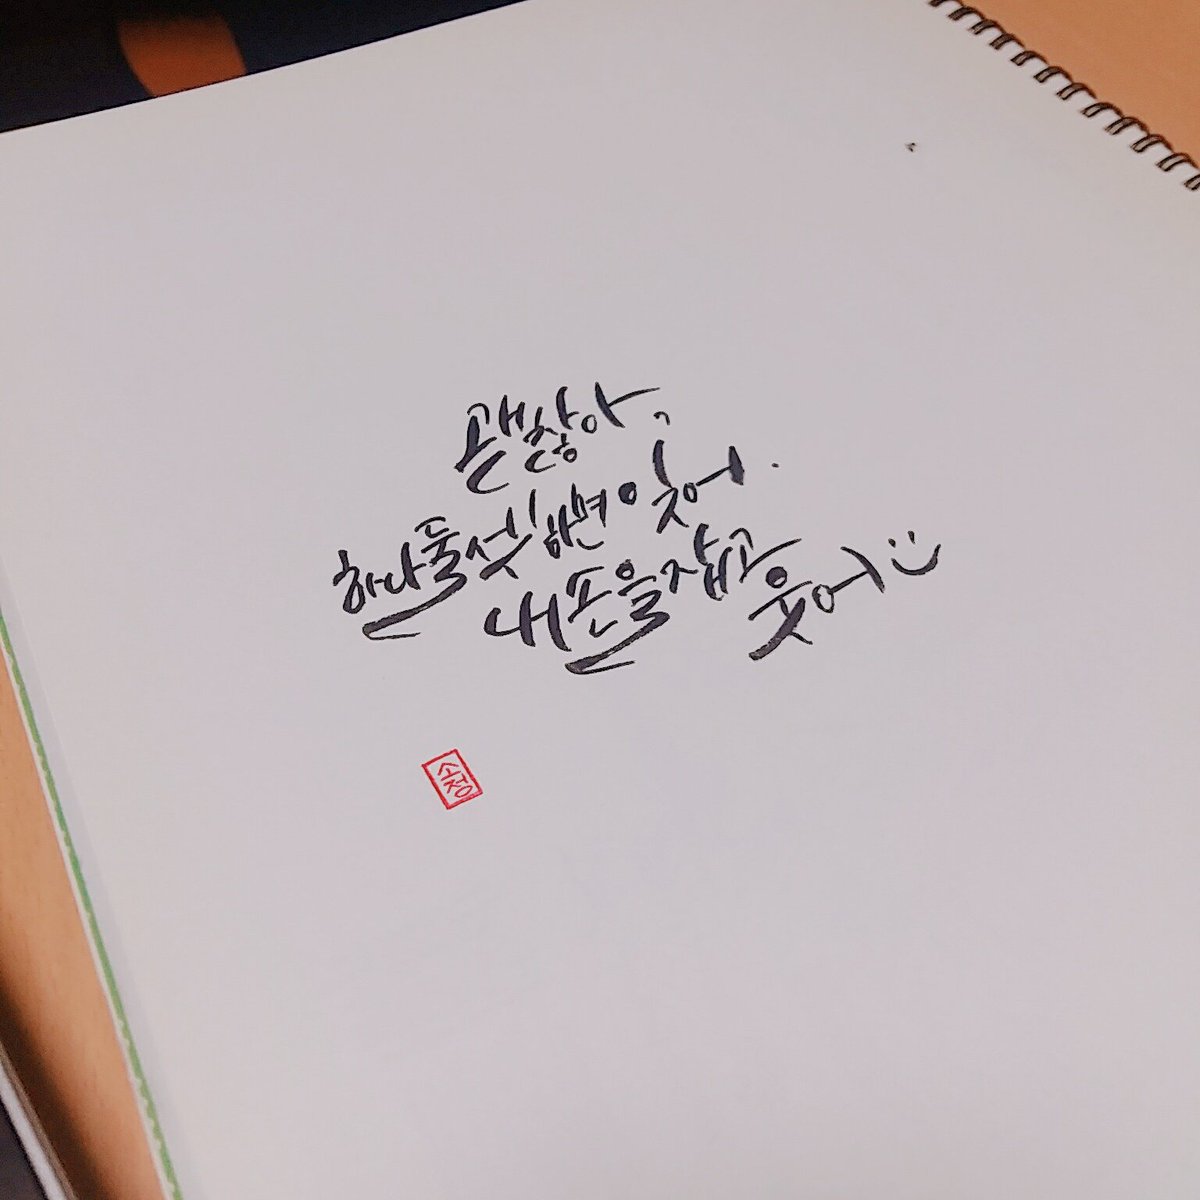 괜찮아,
하나둘셋! 하면 잊어.
내 손을 잡고 웃어 :)
서정